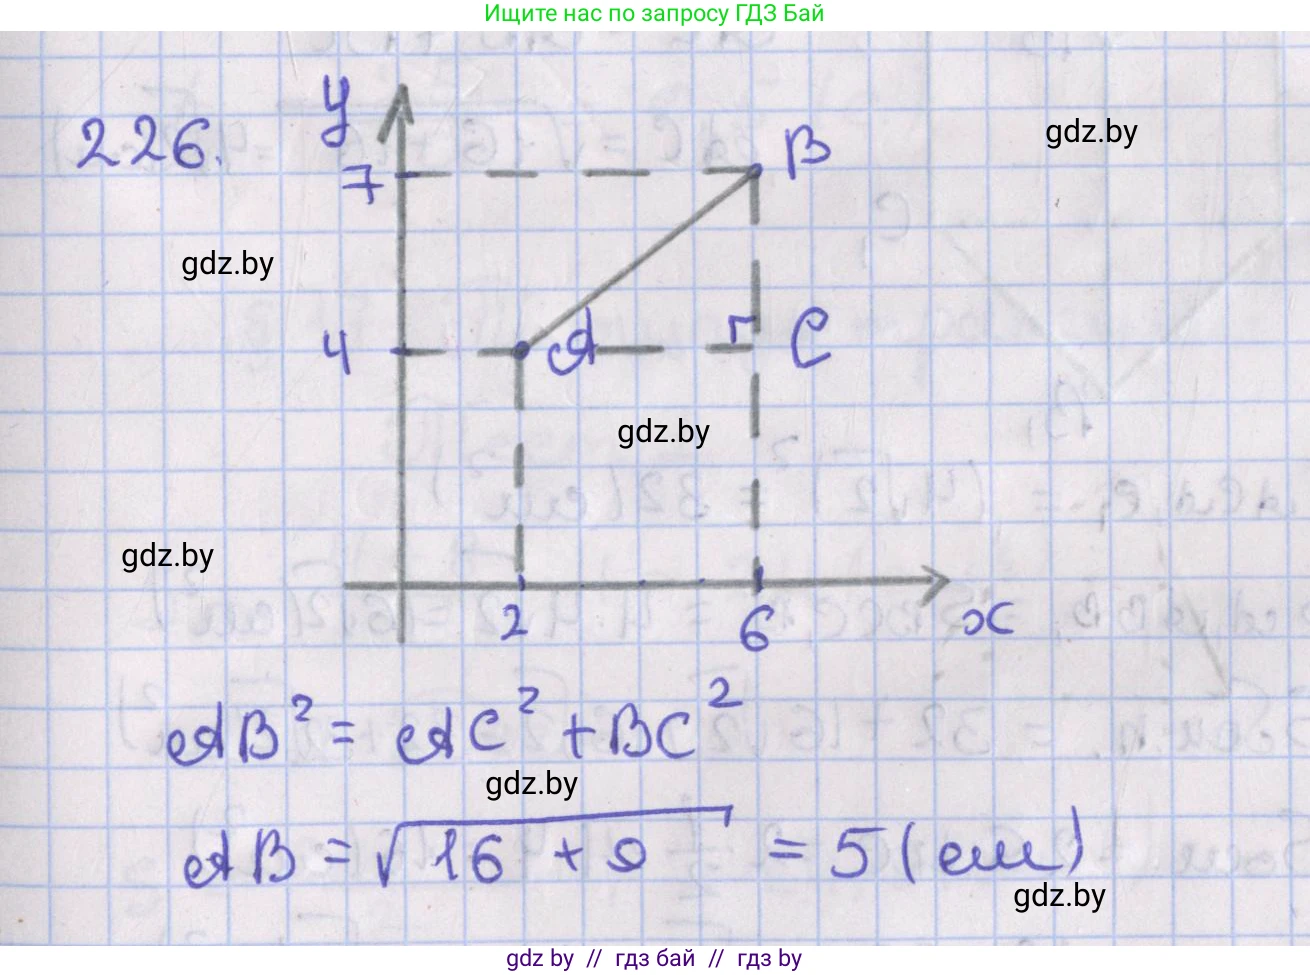 Ищите нас по запросу ГДЗ Бай
226.
y
B
gdz.by
7
gdz.by
4
A
C
gdz.by
gdz.by
2
6
x
AB² = AC² + BC²
gdz.by
AB = √16 + 9 = 5 (см)
gdz.by
gdz by // гдз бай // гдз by